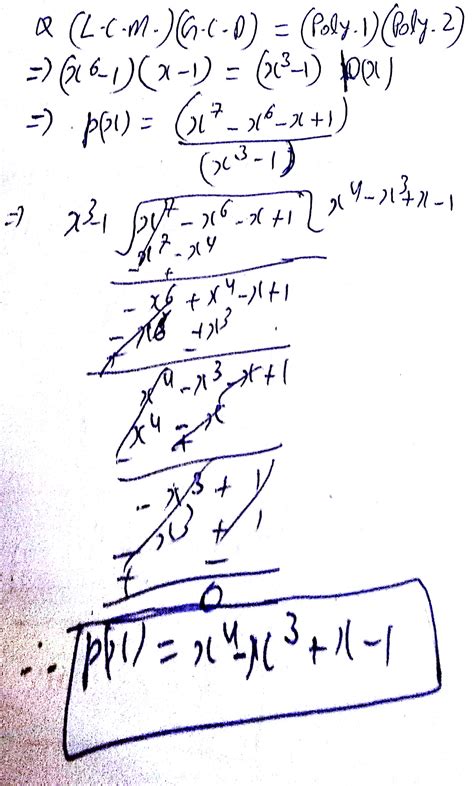 Q (L.C.M.)(G.C.D) = (Poly.1)(Poly.2)
=> (x⁶-1)(x-1) = (x³-1) p(x)
=> p(x) = (x⁷ - x⁶ - x + 1)
(x³-1)
=> x³-1 x⁷ - x⁶ - x + 1 x⁴-x³+x-1
x⁷ - x⁴
- +
- x⁶ + x⁴ - x + 1
- x⁶ + x³
+ -
x⁴ - x³ - x + 1
x⁴ - x
- +
- x³ + 1
- x³ + 1
+ -
0
∴ p(x) = x⁴-x³+x-1